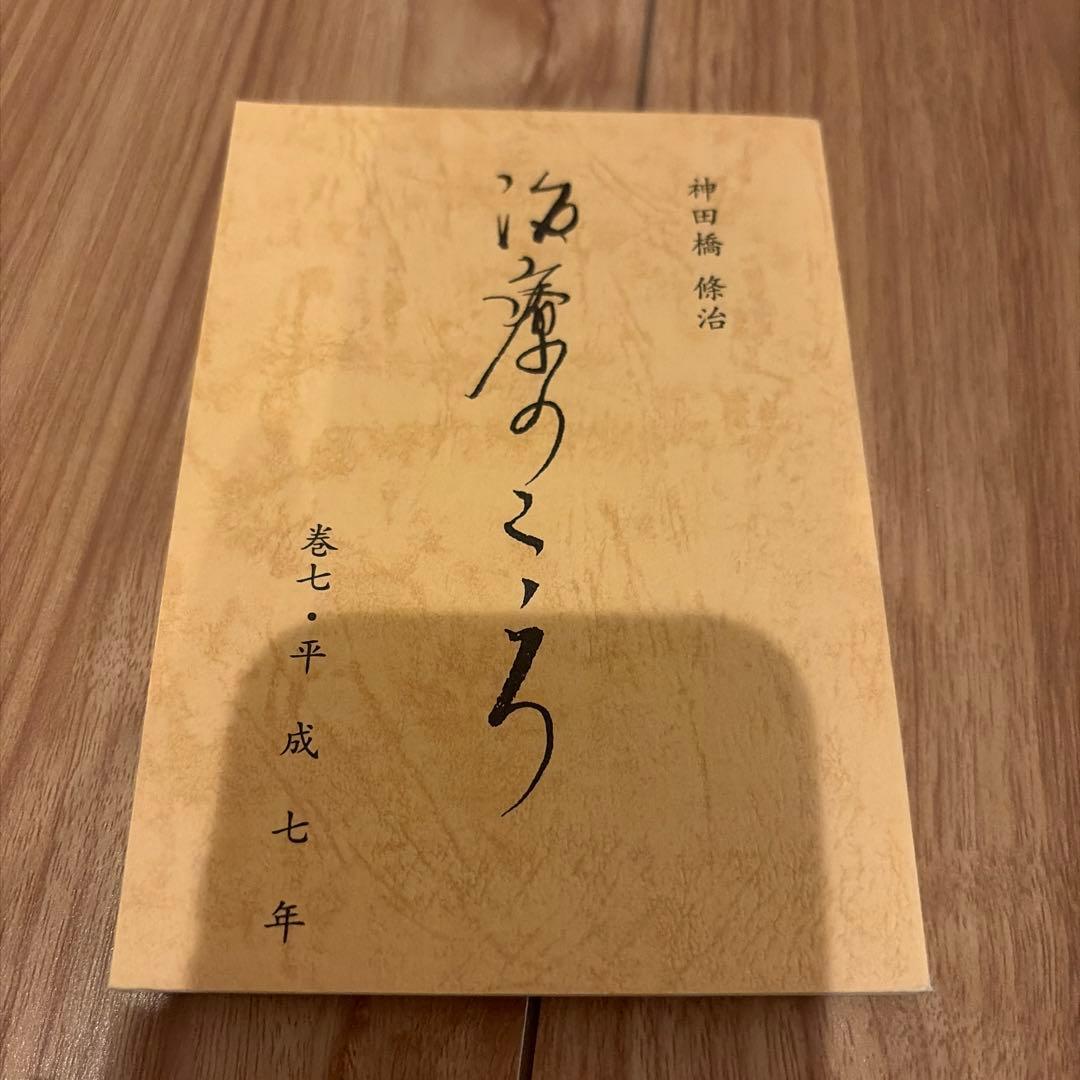 神田橋 條治
治療のこゝろ
巻七・平成七年